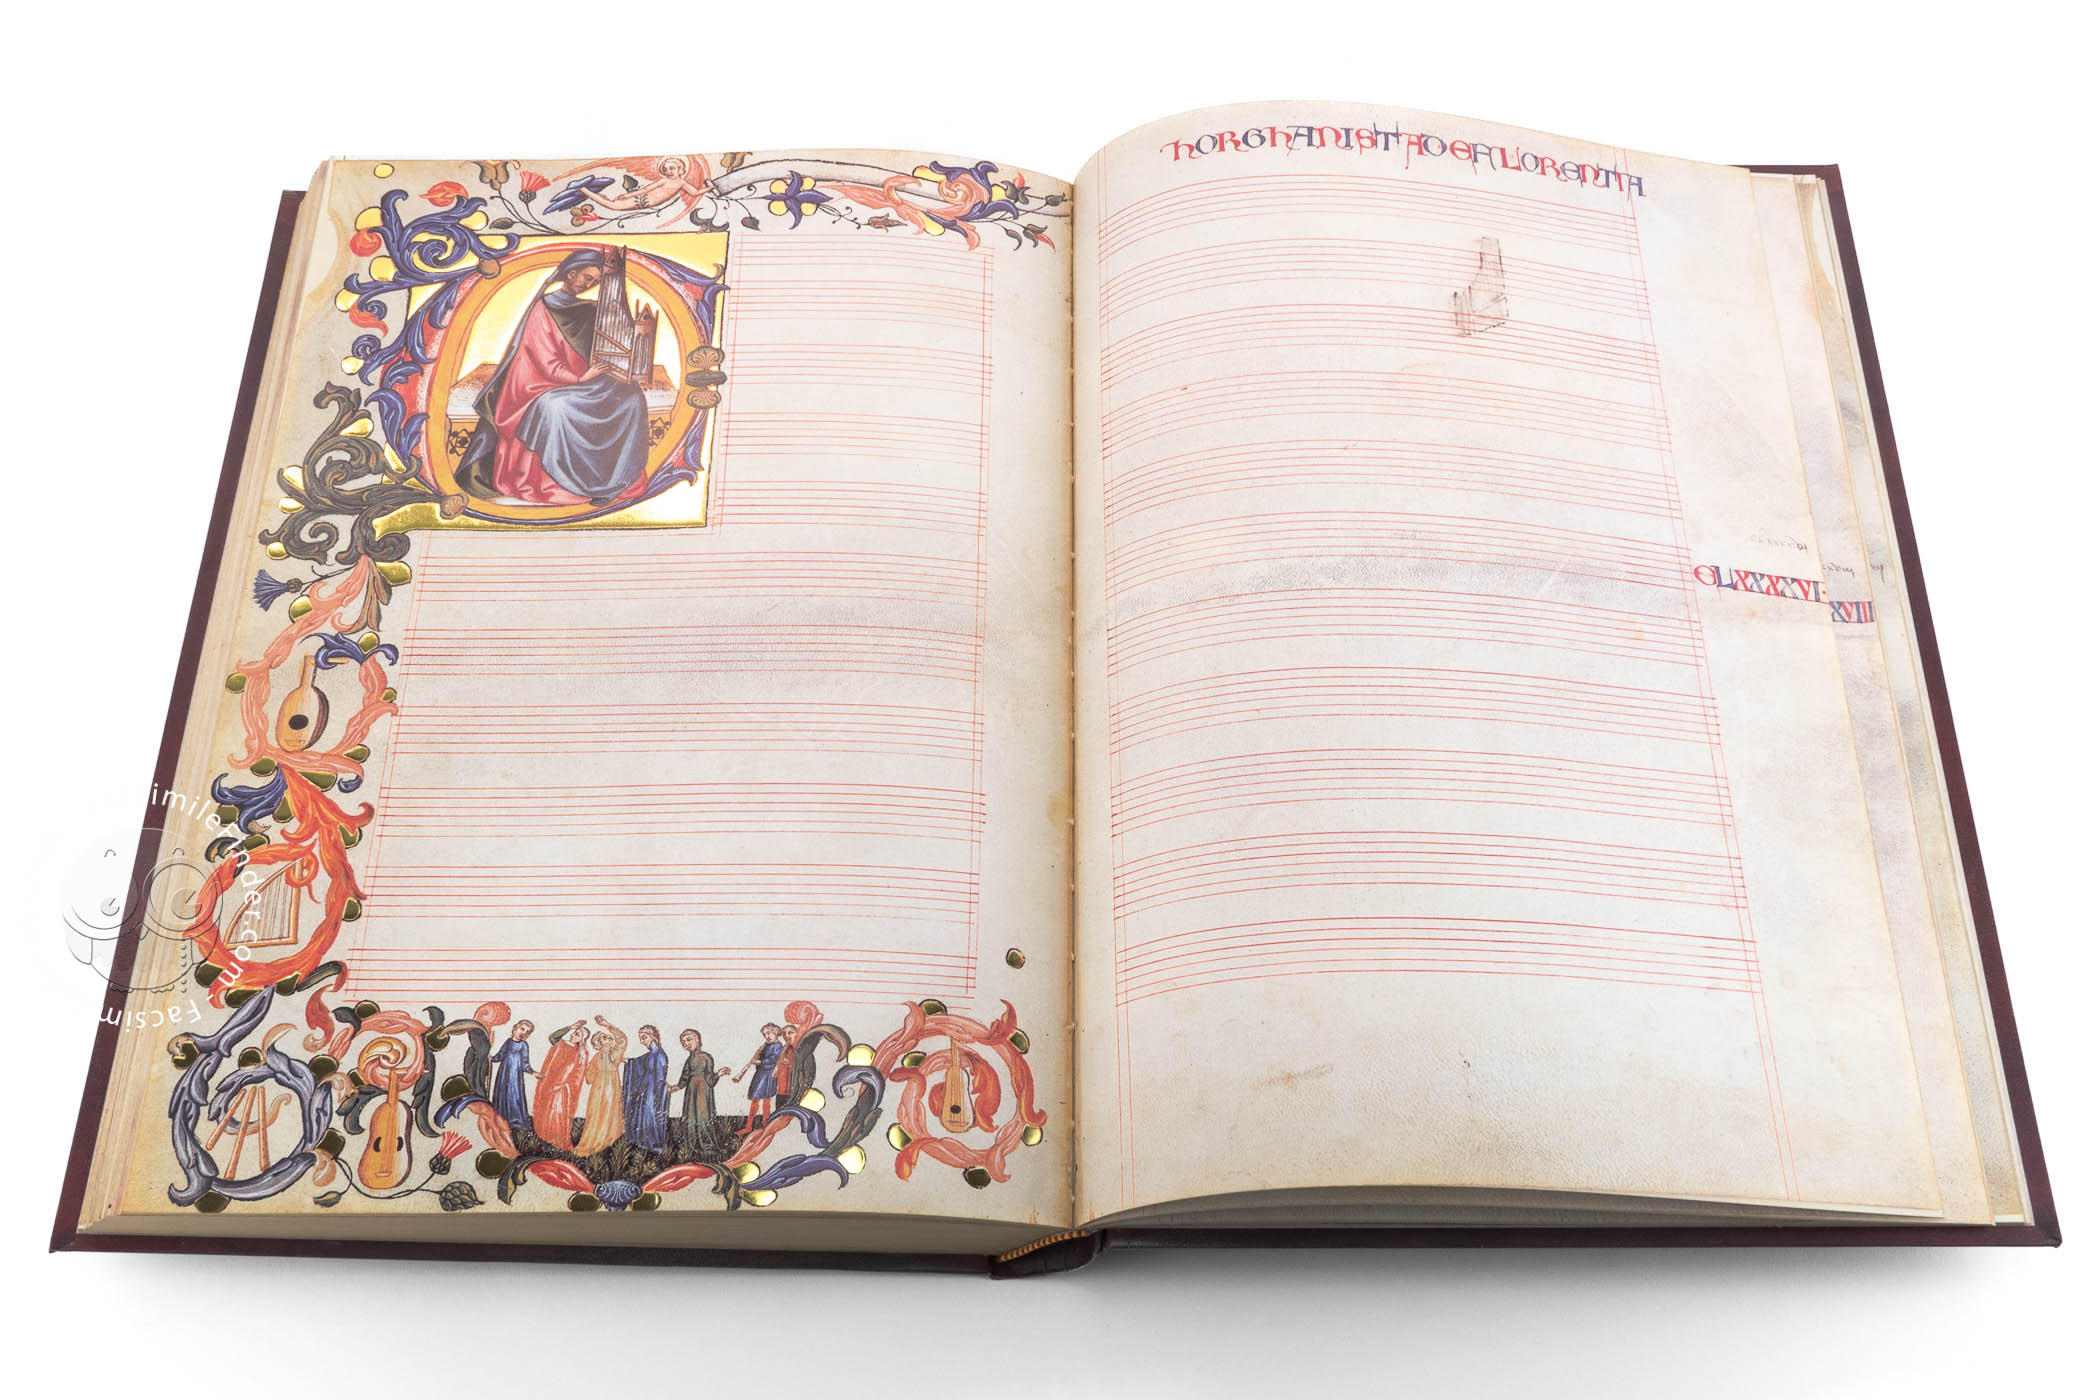 HORGHANISTA DE FLORENTIA
CLXXXXVI.
XVIII
Facsimilefinder.com